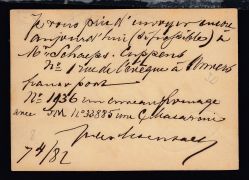 Je vous prie d'envoyer encore
aujourd'hui (si possible) à
Mr Schaeps. Cuppens
No 1 rue de l'Evêque à Anvers
franco port
No 1936 un fromage
No 33885 une C. Macaroni
7/4/82